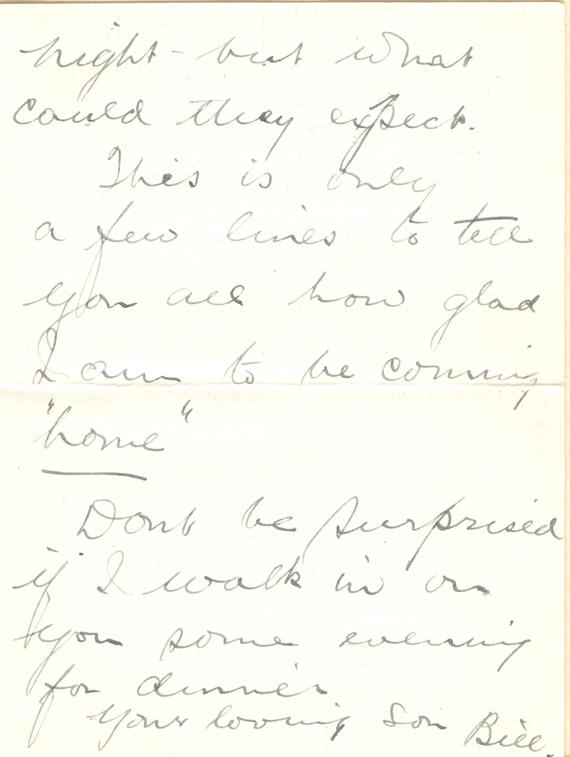 night - but what
could they expect.
This is only
a few lines to tell
you all how glad
I am to be coming
"home"
Dont be surprised
if I walk in on
you some evening
for dinner
Your loving Son Bill.